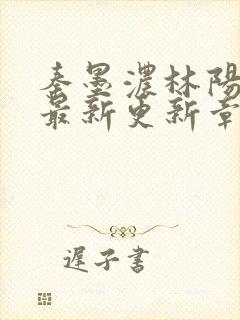 秦墨濃林陽
最新更新章
遲子書